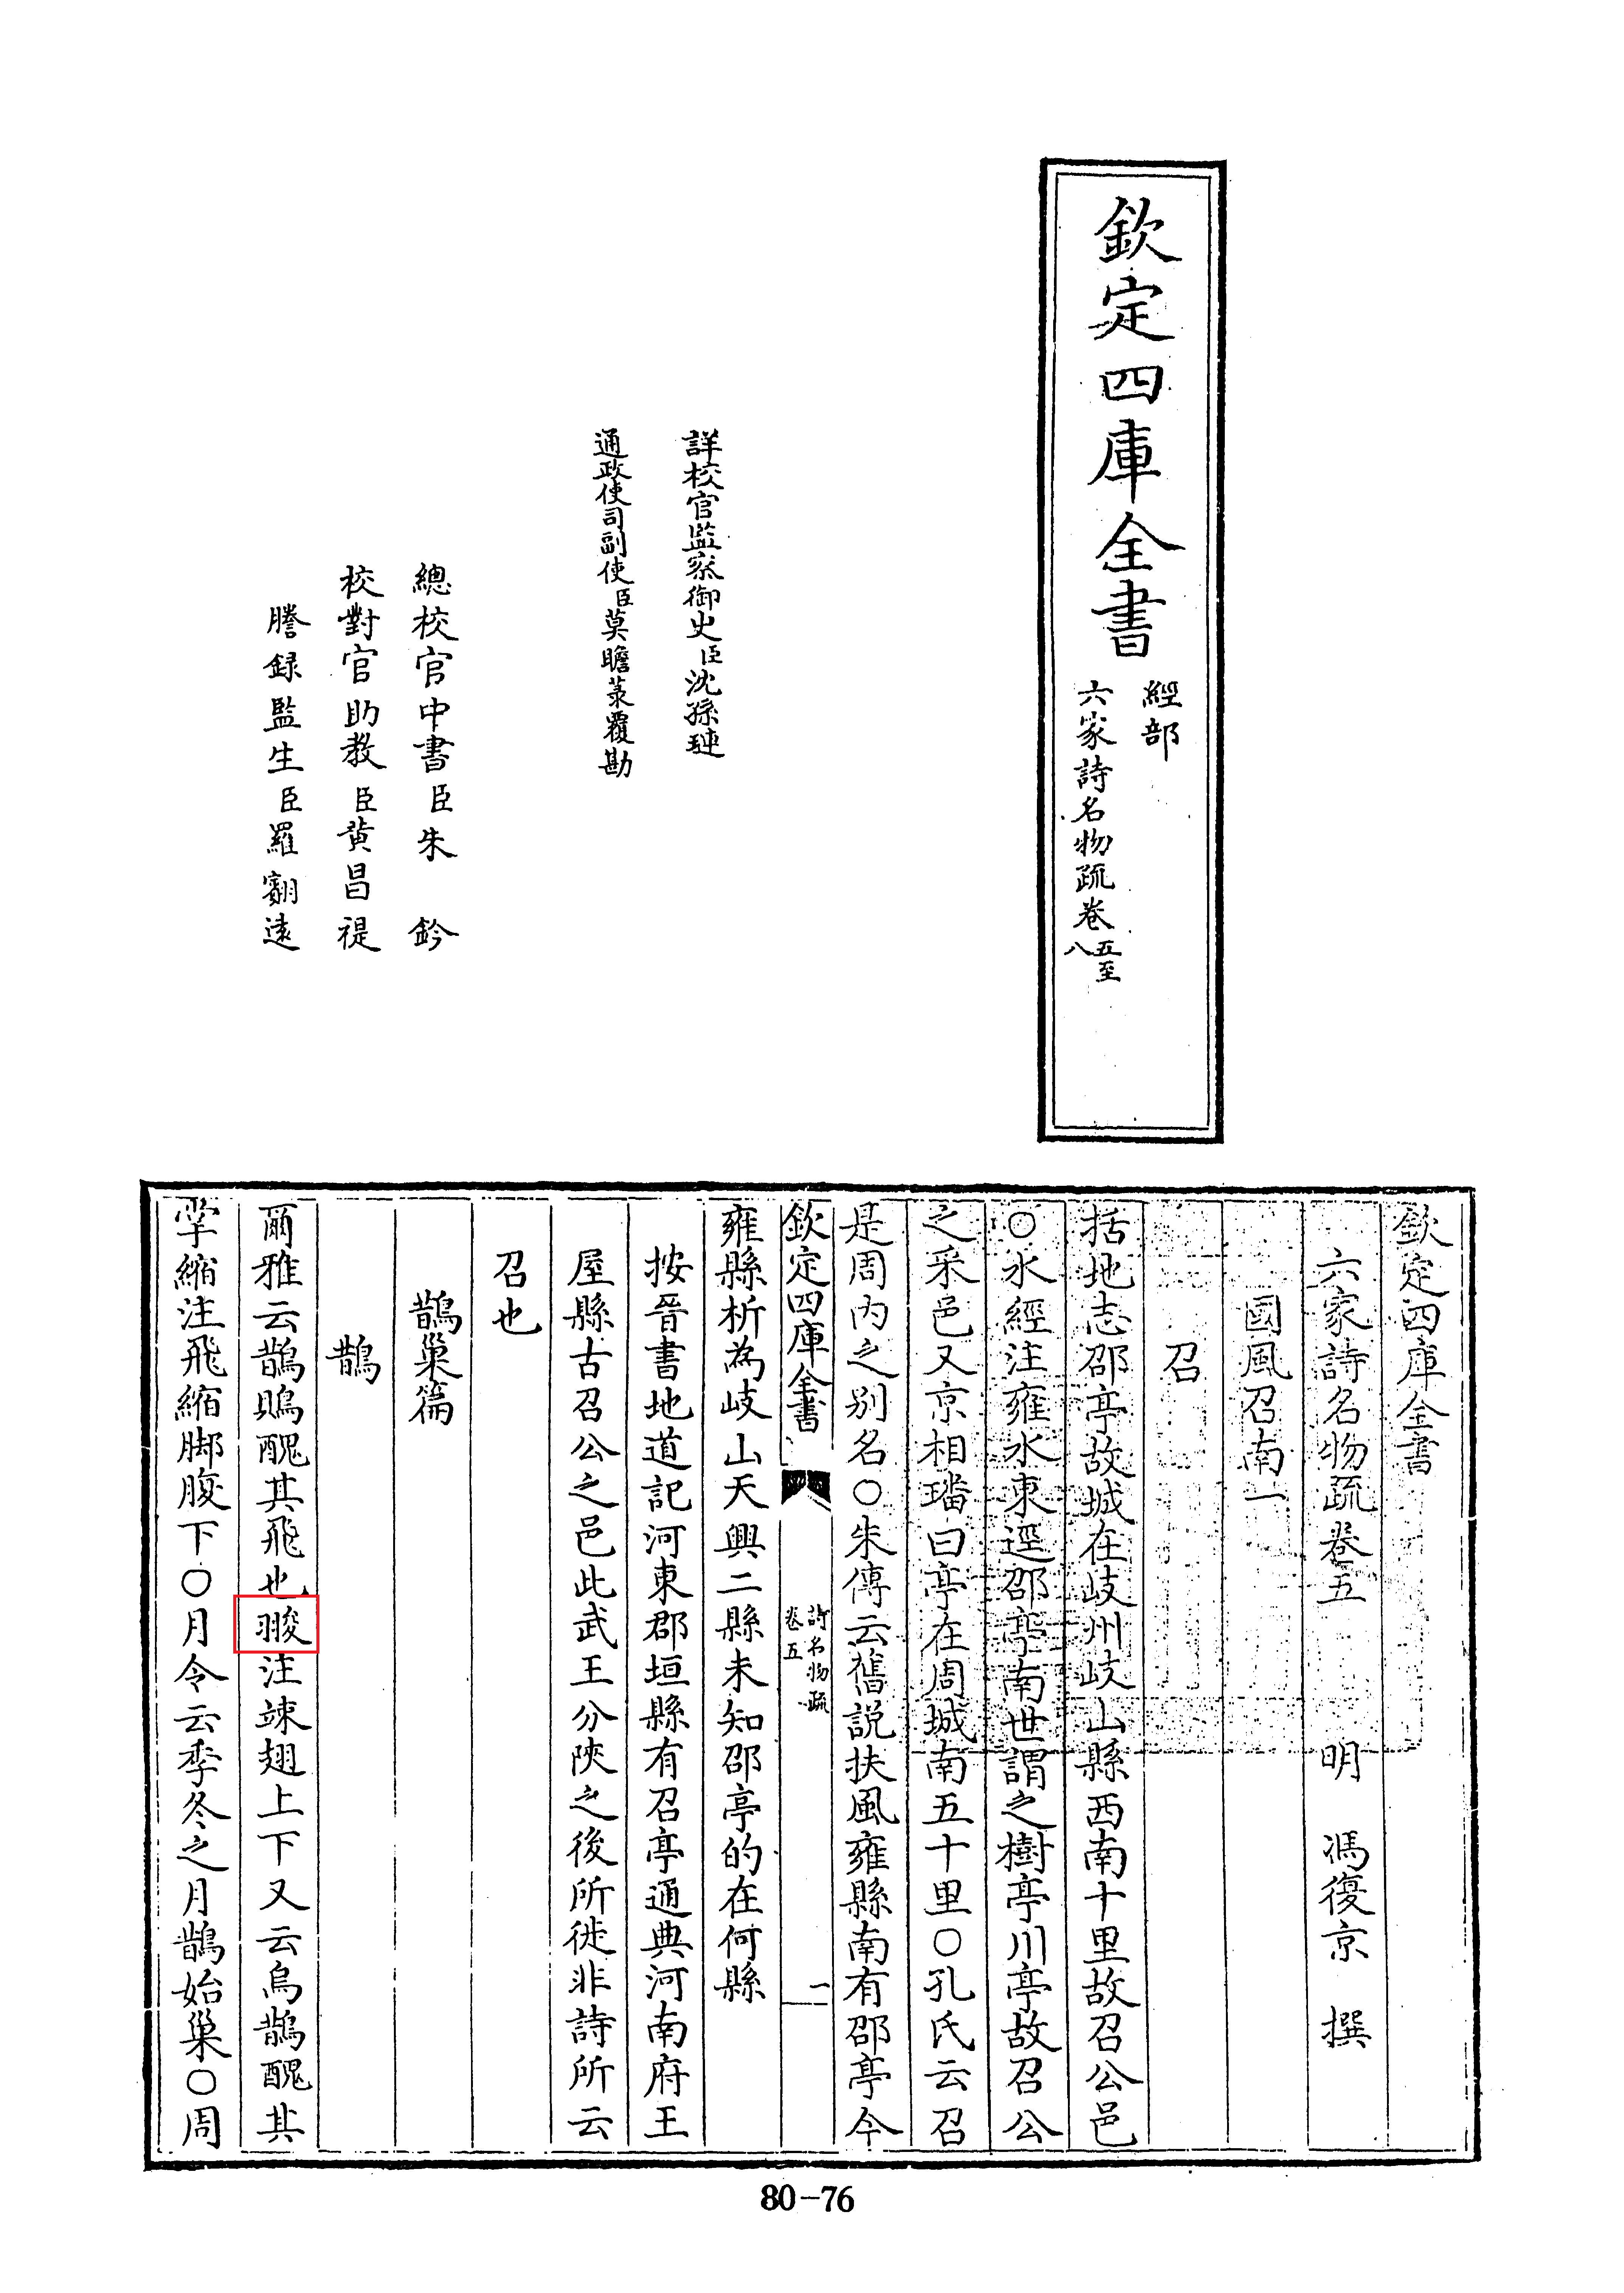 欽定四庫全書
經部
六家詩名物疏卷五至八
詳校官監察御史臣沈孫璉
通政使司副使臣莫瞻菉覆勘
總校官中書臣朱鈐
校對官助教臣黃昌禔
謄録監生臣羅翽遠
欽定四庫全書
六家詩名物疏卷五
明 馮復京 撰
國風召南一
召
括地志邵亭故城在岐州岐山縣西南十里故召公邑
○水經注雍水東逕邵亭南世謂之樹亭川亭故召公
之采邑又京相璠曰亭在周城南五十里○孔氏云召
是周内之别名○朱傳云舊説扶風雍縣南有邵亭今
欽定四庫全書
詩名物疏
卷五
一
雍縣析為岐山天興二縣未知邵亭的在何縣
按晉書地道記河東郡垣縣有召亭通典河南府王
屋縣古召公之邑此武王分陜之後所徙非詩所云
召也
鵲巢篇
鵲
爾雅云鵲鵙醜其飛也翪注竦翅上下又云烏鵲醜其
掌縮注飛縮脚腹下○月令云季冬之月鵲始巢○周
80-76